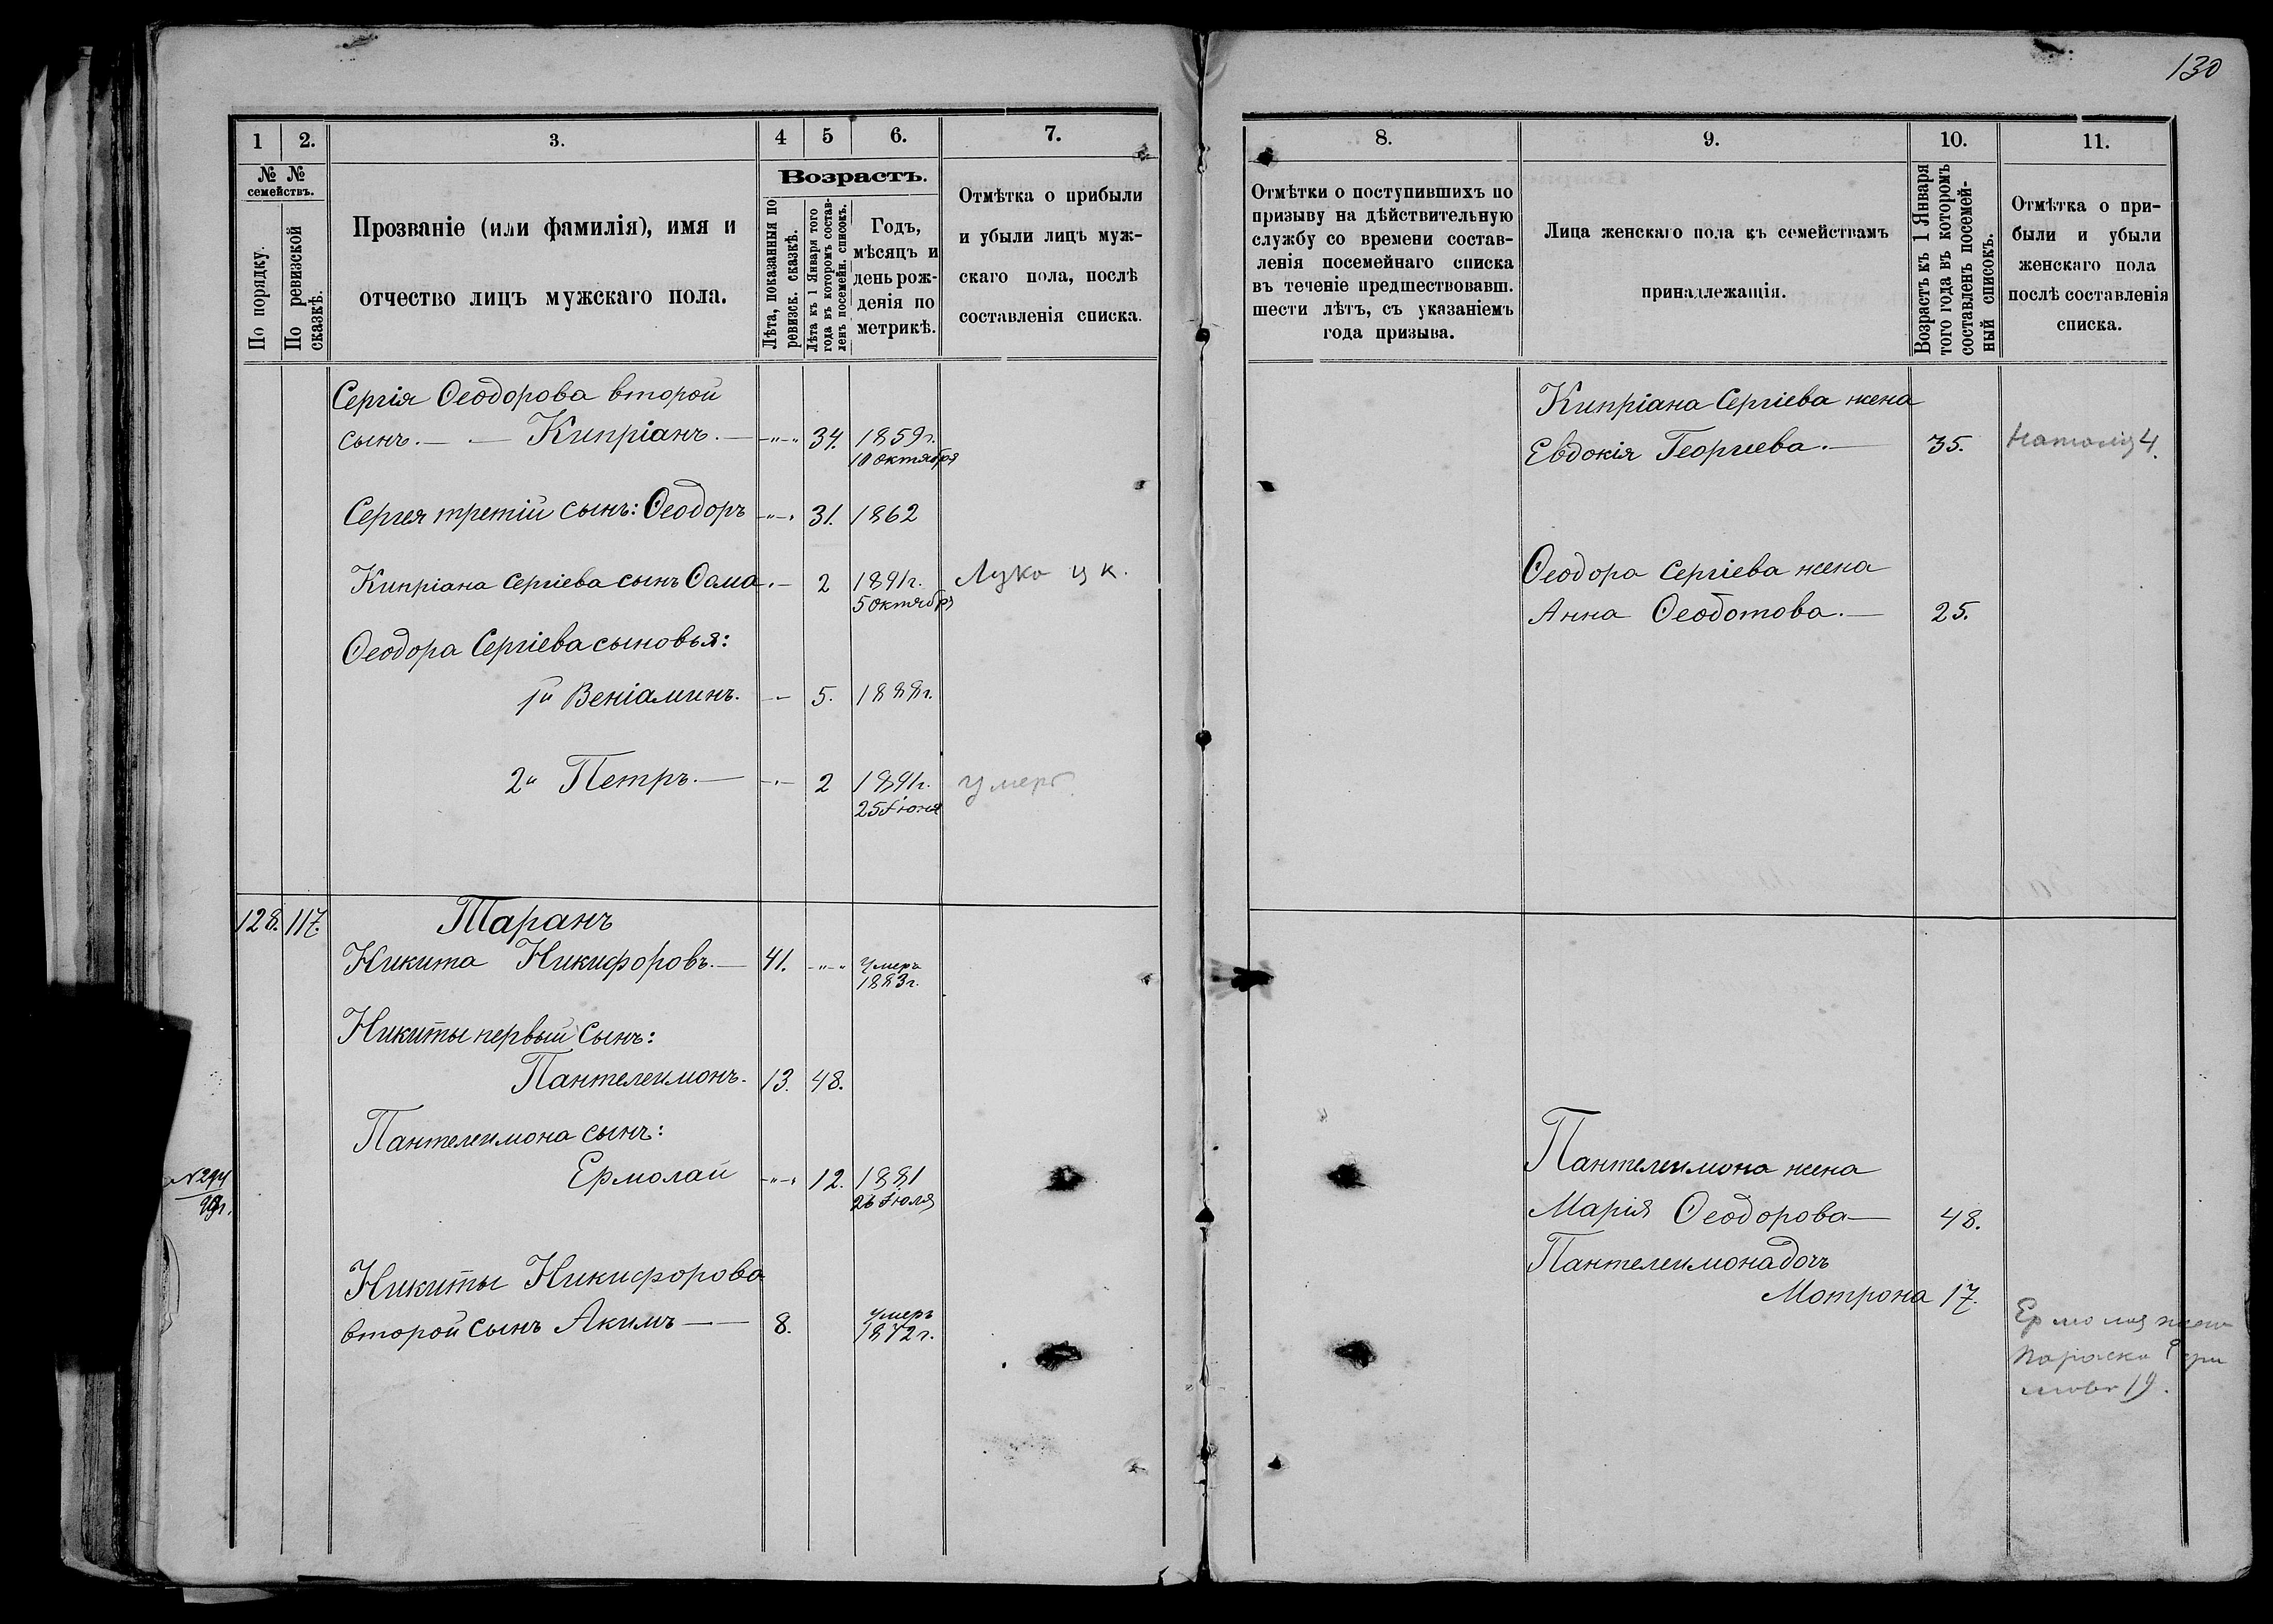 130
1
2.
3.
4
5
6.
7.
№ №
семействъ.
По порядку.
По ревизской
сказкѣ.
Прозваніе (или фамилія), имя и
отчество лицъ мужскаго пола.
Возрастъ.
Лѣта, показанныя по
ревизск. сказкѣ.
Лѣта къ 1 Января того
года въ которомъ состав-
ленъ посемейн. списокъ.
Годъ,
мѣсяцъ и
день рож-
денія по
метрикѣ.
Отмѣтка о прибыли
и убыли лицъ муж-
скаго пола, послѣ
составленія списка.
Сергія Ѳеодорова второй
сынъ. — Кипріанъ. — 34. 1859г.
10 октября
Сергея третій сынъ: Ѳеодоръ 31. 1862
Кипріана Сергіева сынъ Ѳома. — 2 1891г.
5 октябр
Ѳеодора Сергіева сыновья:
1й Веніаминъ. — 5. 1888г.
2й Петръ. — 2 1891г. умеръ
25 Іюня
128. 117. Таранъ
Никита Никифоровъ. — 41. умеръ
1883г.
Никиты первый сынъ:
Пантелеимонъ. 13. 48.
Пантелеимона сынъ:
Ермолай 12. 1881
26 Іюля
Никиты Никифорова
второй сынъ Акимъ — — 8. умеръ
1872г.
8.
9.
10.
11.
Отмѣтки о поступившихъ по
призыву на дѣйствительную
службу со времени состав-
ленія посемейнаго списка
въ теченіе предшествовавш.
шести лѣтъ, съ указаніемъ
года призыва.
Лица женскаго пола къ семействамъ
принадлежащія.
Возрастъ къ 1 Января
того года въ которомъ
составленъ посемей-
ный списокъ.
Отмѣтка о при-
были и убыли
женскаго пола
послѣ составленія
списка.
Кипріана Сергіева жена
Евдокія Георгиева. — 35.
Ѳеодора Сергіева жена
Анна Ѳеодотова. — 25.
Пантелеимона жена
Марія Ѳеодорова — 48.
Пантелеимона дочь
Мотрона 17.
Ермолая жена
Параска
19.